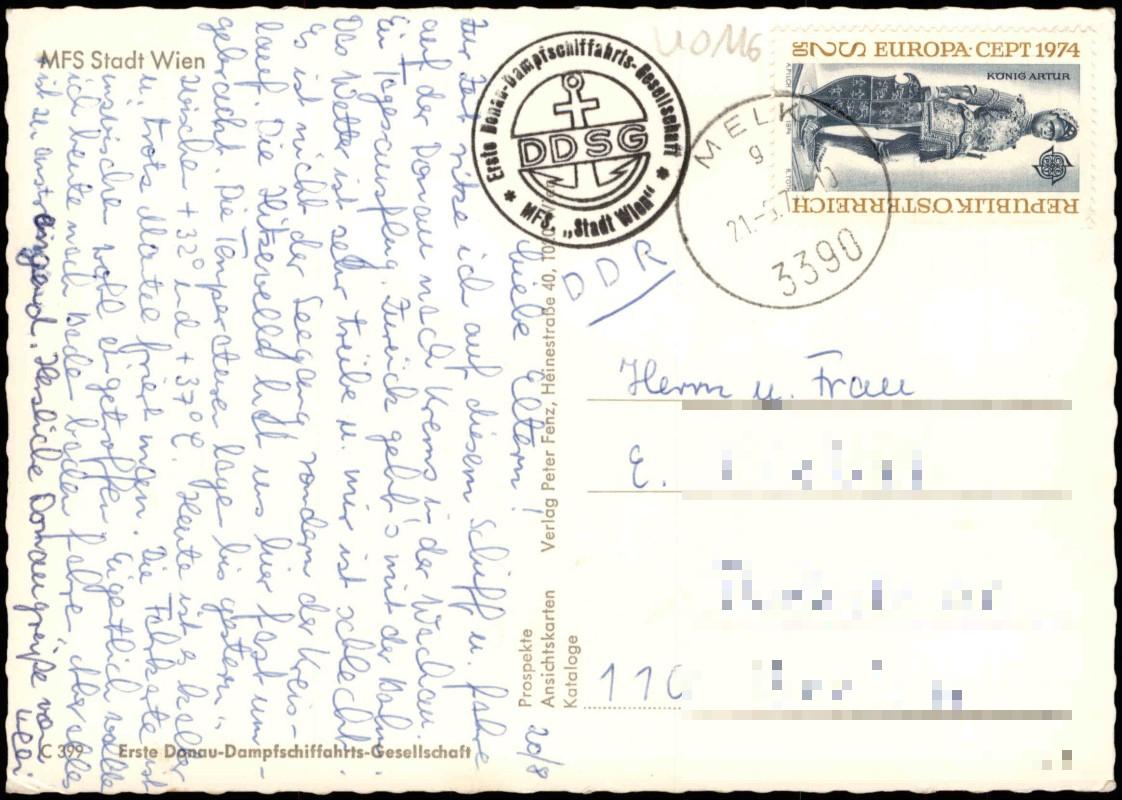 MFS Stadt Wien
20/8
Liebe Eltern!
Zur Zeit sitze ich auf diesem Schiff u. fahre
auf der Donau nach Krems in der Wachau.
Ein Tagesausflug. Zurück geht's mit der Bahn.
Das Wetter ist sehr trübe u. mir ist schlecht.
Es ist nicht der Seegang sondern der Kreis-
lauf. Die Hitzewelle hat uns hier fast um-
gebracht. Die Temperaturen lagen bis gestern
zwischen +32° und +37°C. Heute ist es kalt
u. trotz Mantel friert man. Die Fahrkarte ist
inzwischen wohl eingetroffen. Eigentlich wollte
ich heute nach Baden fahren, aber alles
ist zu anstrengend. Herzliche Donaugrüße von
C 399 Erste Donau-Dampfschiffahrts-Gesellschaft
Prospekte
Ansichtskarten
Kataloge
Verlag Peter Fenz, Heinestraße 40,
Erste Donau-Dampfschiffahrts-Gesellschaft
DDSG
* MFS. „Stadt Wien" *
U0116
S2 50 EUROPA·CEPT 1974
KÖNIG ARTUR
REPUBLIK ÖSTERREICH
MELK
9
21.-8.
3390
DDR
Herrn u. Frau
E.
110